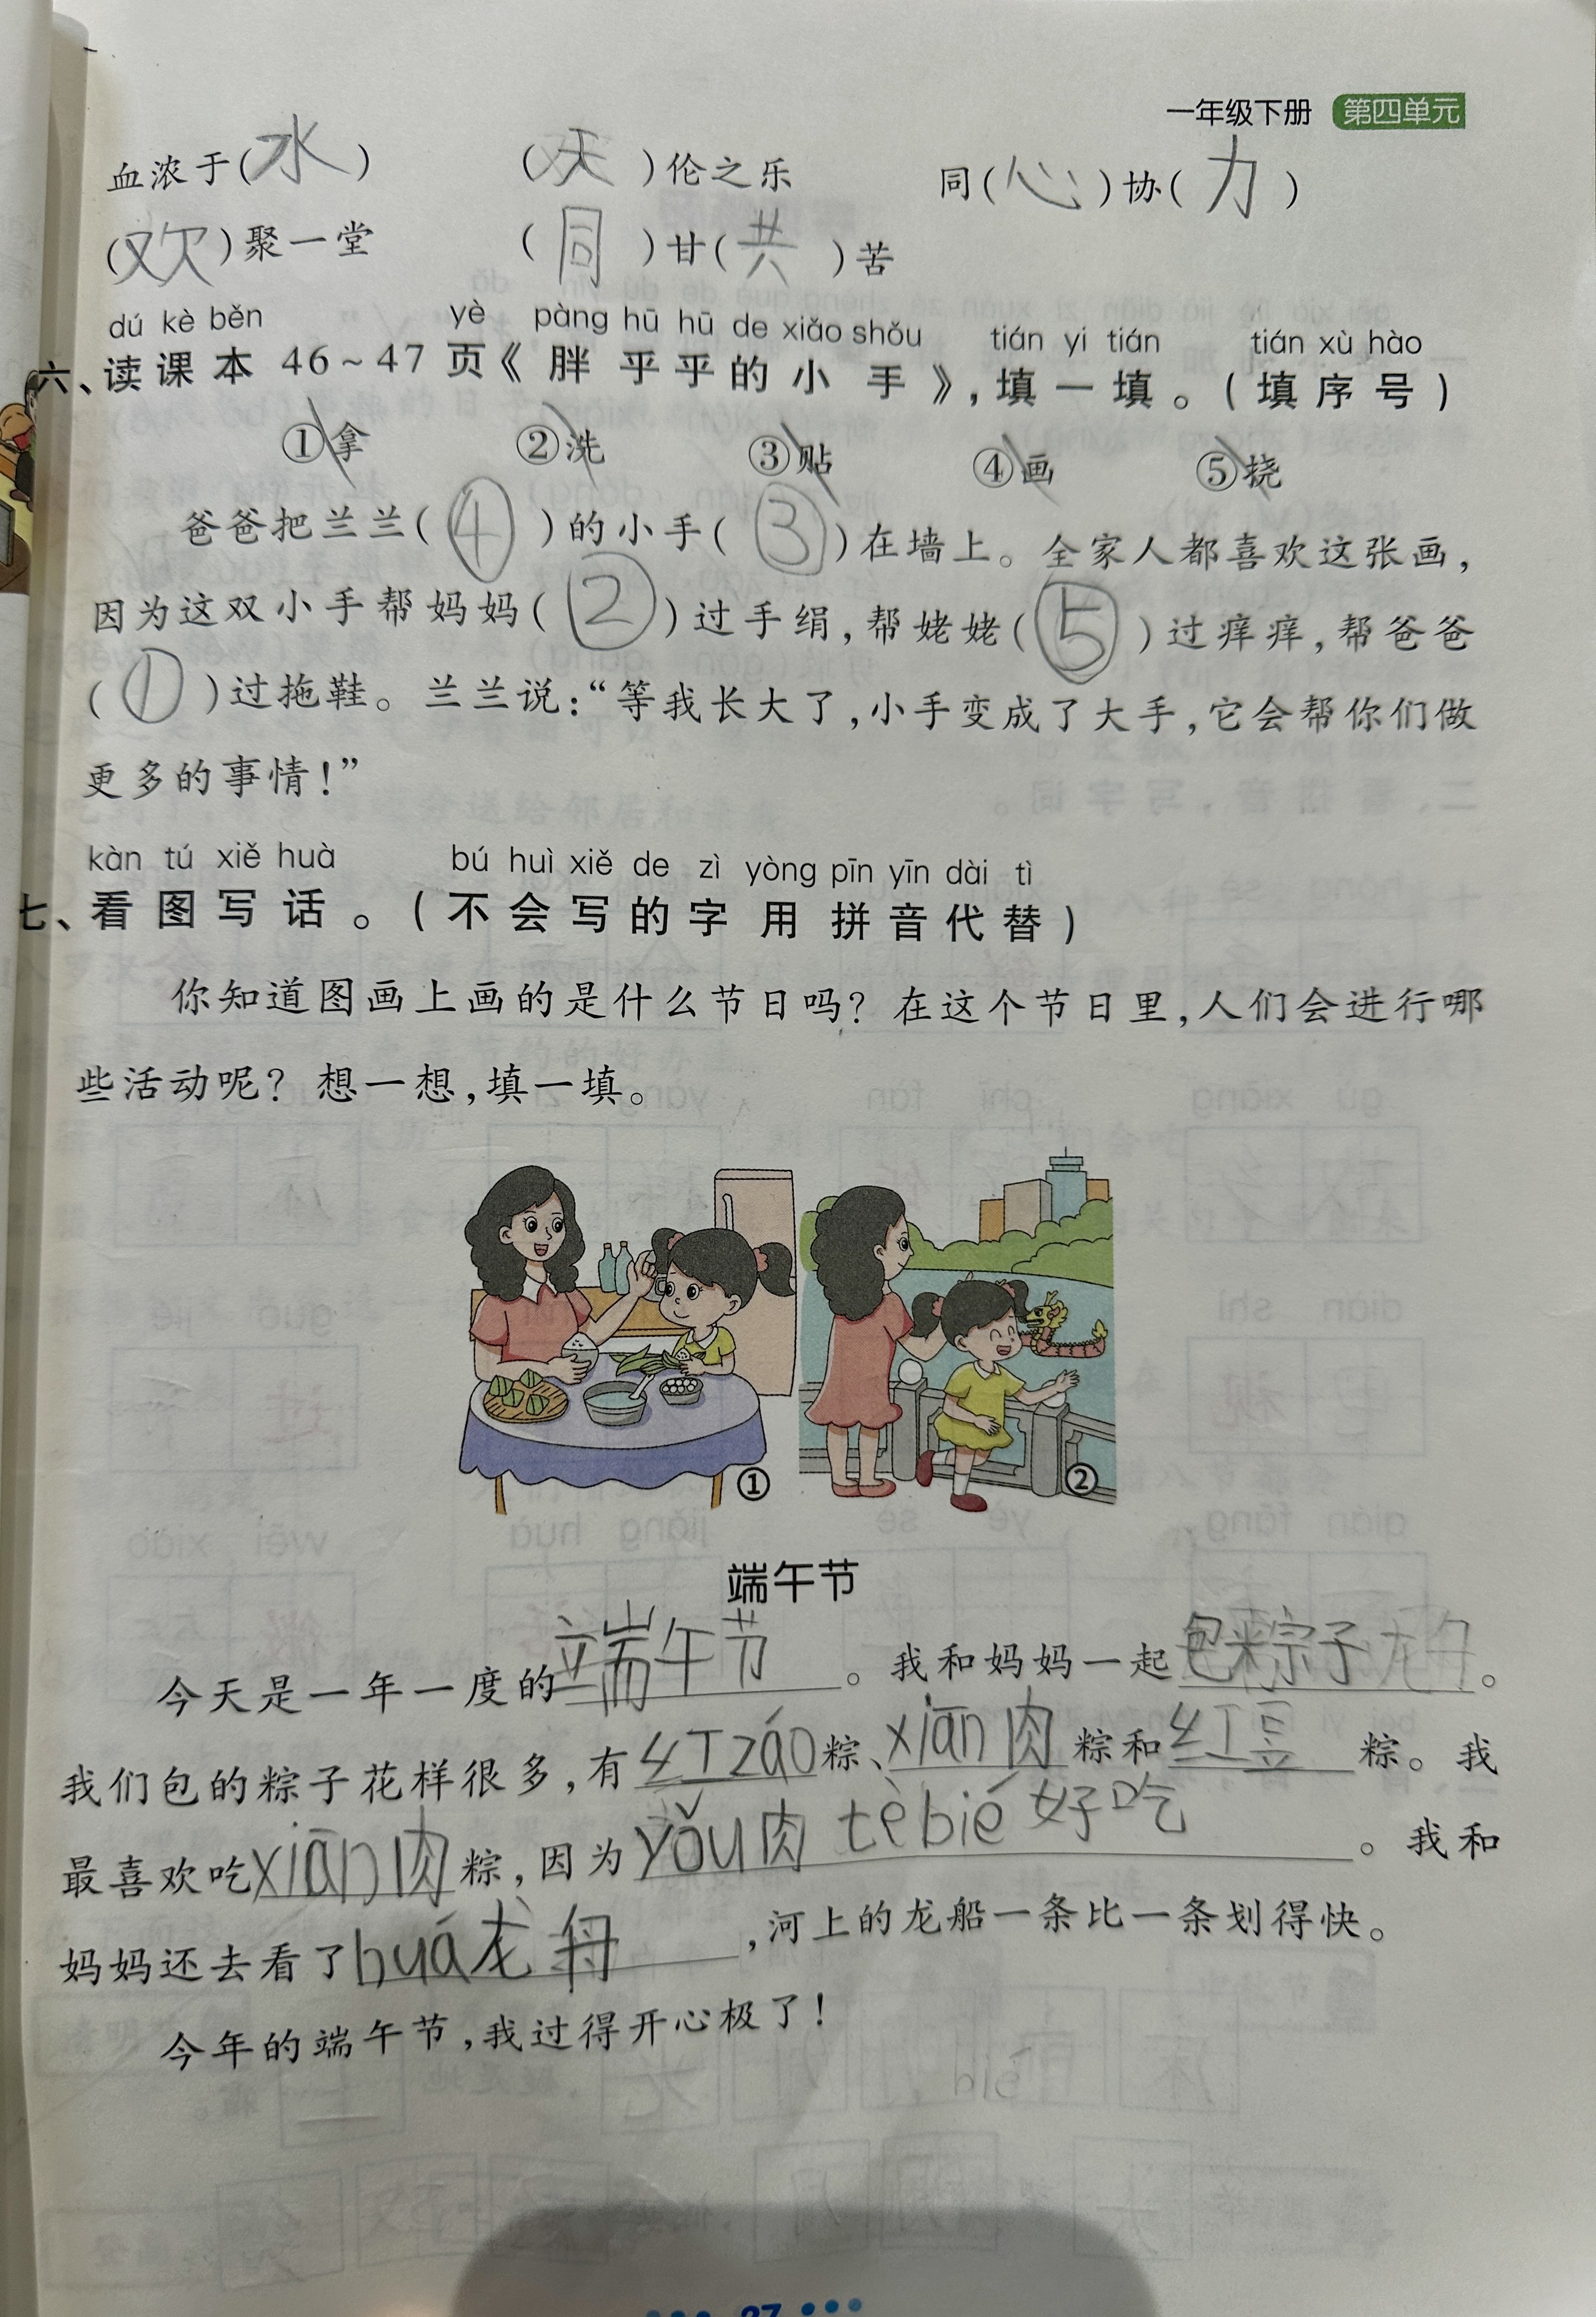 一年级下册 第四单元
血浓于(水) (天)伦之乐 同(心)协(力)
(欢)聚一堂 (同)甘(共)苦
dú kè běn yè pàng hū hū de xiǎo shǒu tián yi tián tián xù hào
六、读课本46~47页《胖乎乎的小手》,填一填。(填序号)
①拿 ②洗 ③贴 ④画 ⑤挠
爸爸把兰兰(④)的小手(③)在墙上。全家人都喜欢这张画,
因为这双小手帮妈妈(②)过手绢,帮姥姥(⑤)过痒痒,帮爸爸
(①)过拖鞋。兰兰说:“等我长大了,小手变成了大手,它会帮你们做
更多的事情!”
kàn tú xiě huà bú huì xiě de zì yòng pīn yīn dài tì
七、看图写话。(不会写的字用拼音代替)
你知道图画上画的是什么节日吗?在这个节日里,人们会进行哪
些活动呢?想一想,填一填。
① ②
端午节
今天是一年一度的端午节。我和妈妈一起包粽子。
我们包的粽子花样很多,有红záo粽、xiān肉粽和红豆粽。我
最喜欢吃xiān肉粽,因为yǒu肉tèbié好吃。我和
妈妈还去看了huá龙舟,河上的龙船一条比一条划得快。
今年的端午节,我过得开心极了!
27